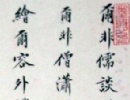 爾非儒談
爾非僧瀟
繪爾容外